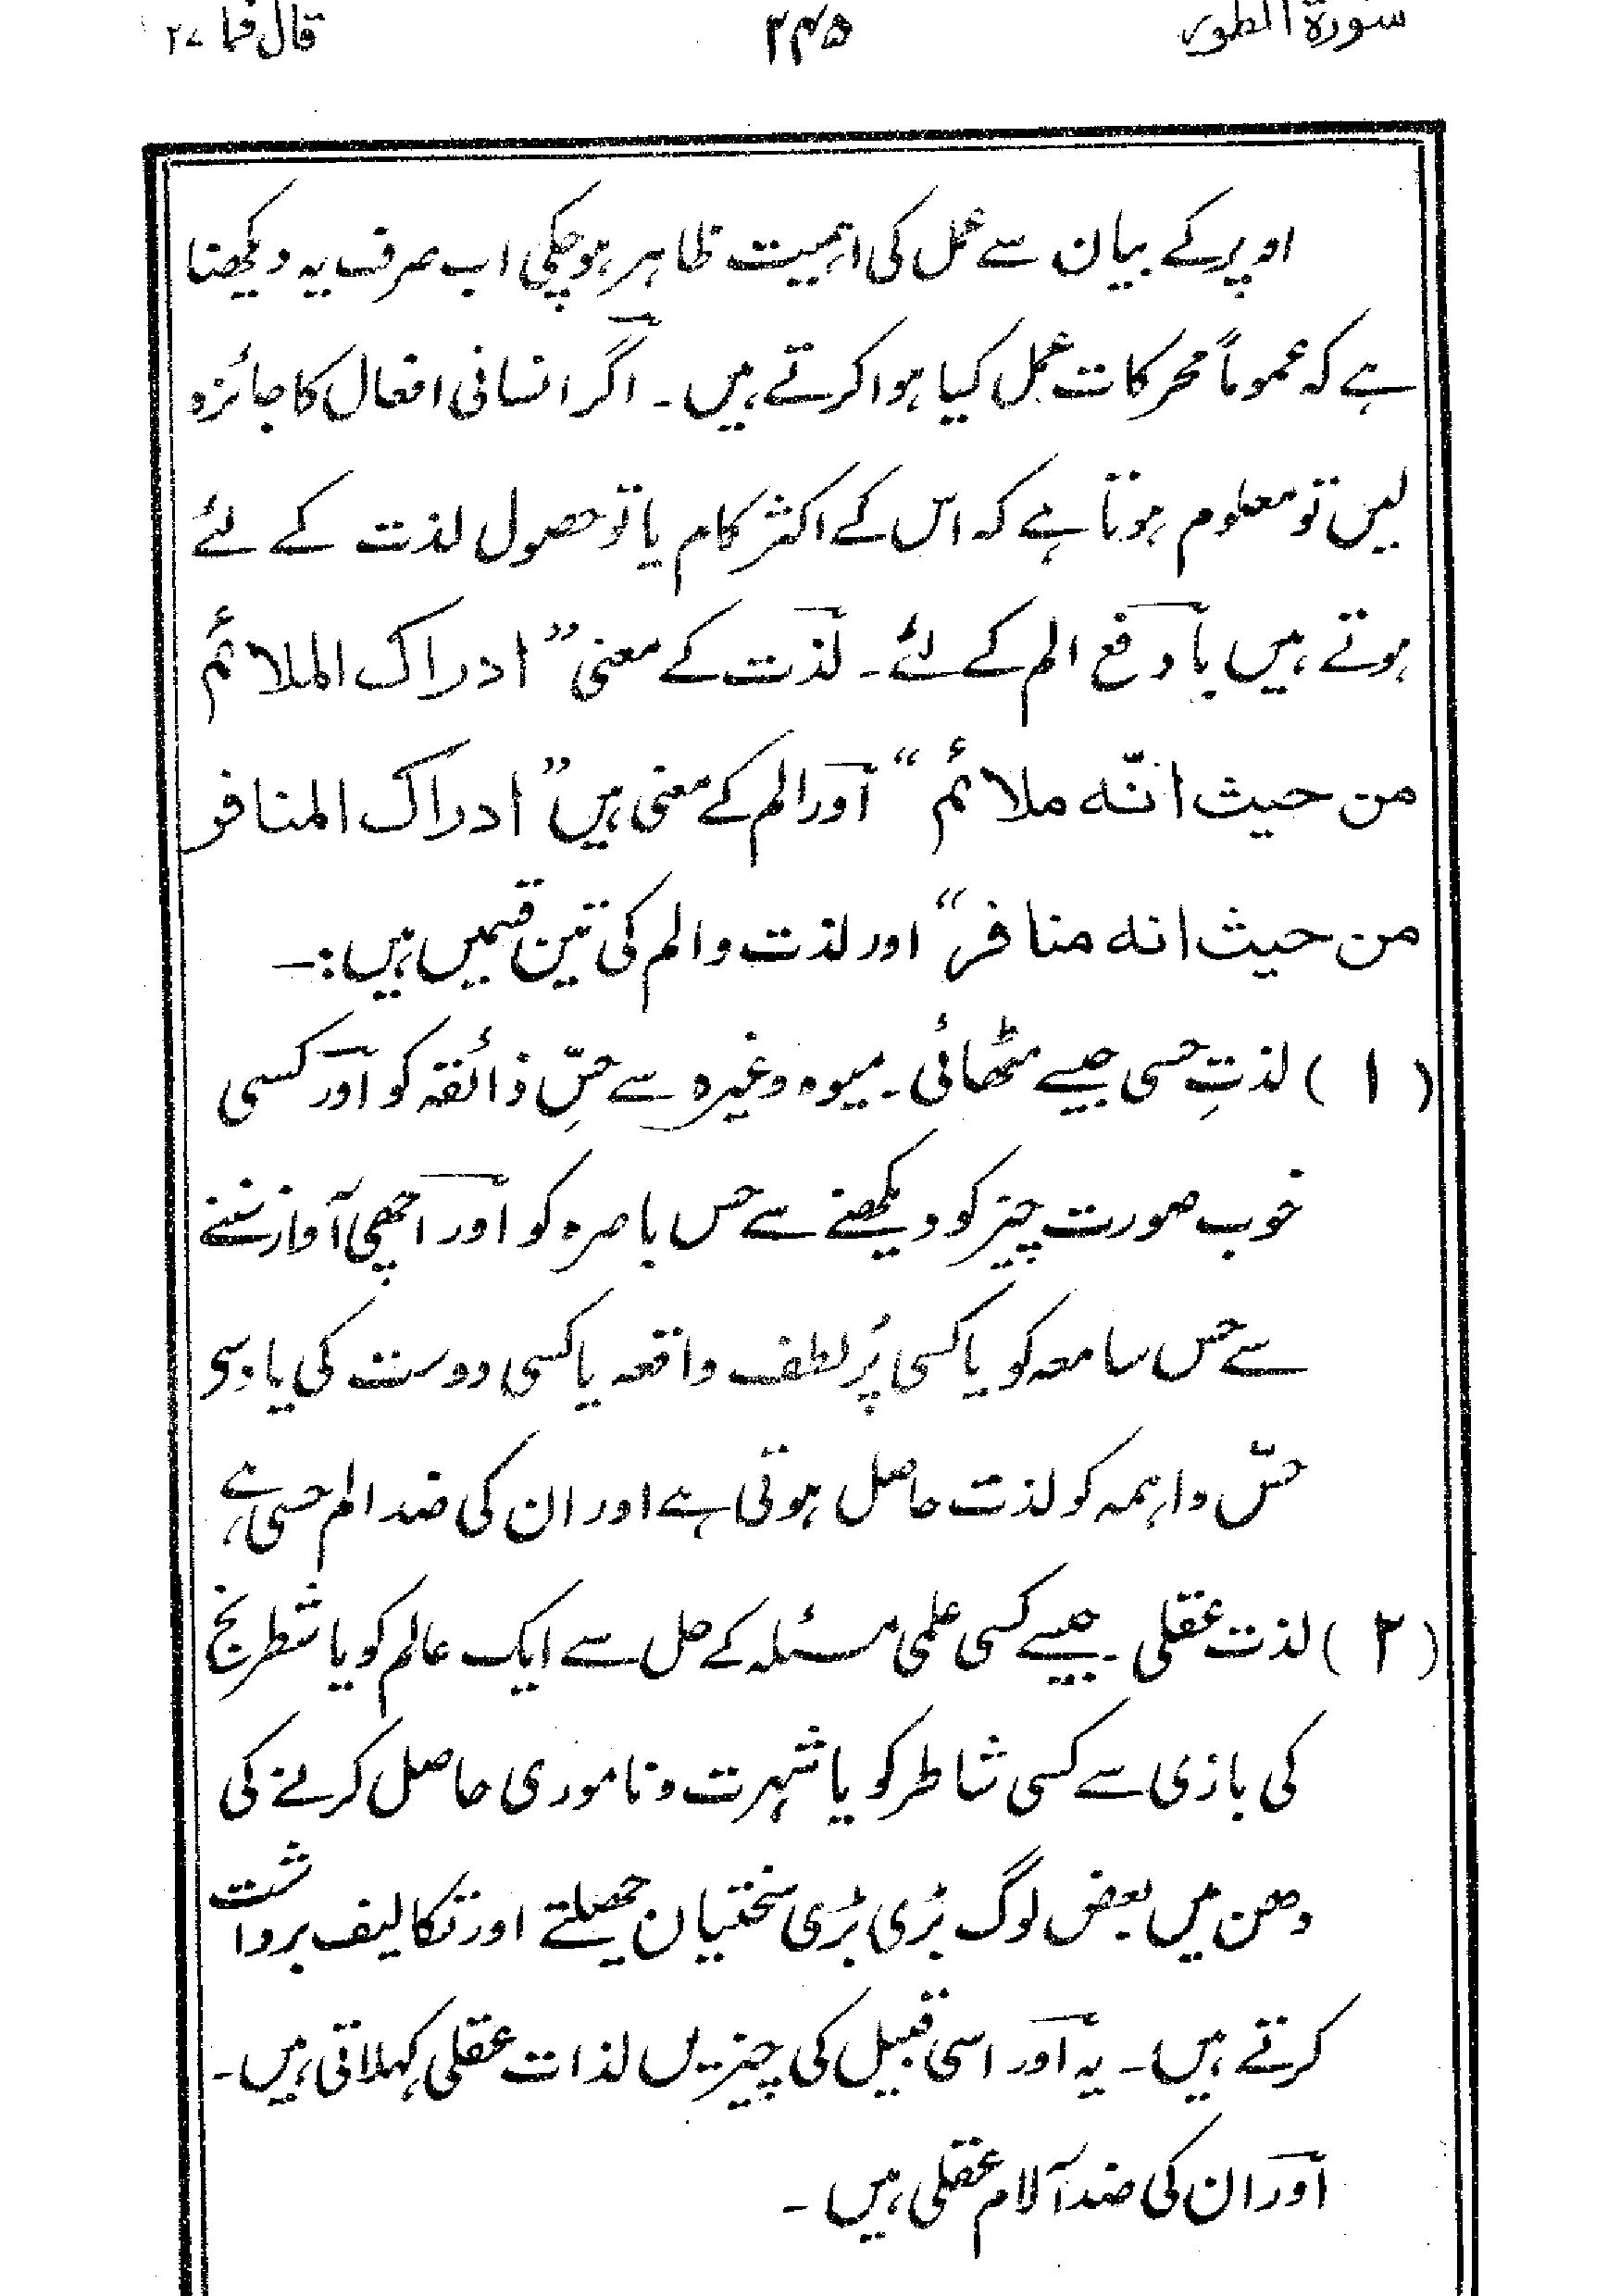 سورۃ الطور ۲۴۵ قال فما ۲۷
اوپر کے بیان سے عمل کی اہمیت ظاہر ہوچکی اب صرف یہ دیکھنا
ہے کہ عموماً محرکات عمل کیا ہوا کرتے ہیں۔ اگر انسانی افعال کا جائزہ
لیں تو معلوم ہوتا ہے کہ اس کے اکثر کام یا تو حصول لذت کے لئے
ہوتے ہیں یا دفع الم کے لئے۔ لذت کے معنی ”ادراک الملائم
من حیث انّہ ملائم“ اور الم کے معنی ہیں ”ادراک المنافر
من حیث انہ منافر“ اور لذت و الم کی تین قسمیں ہیں:۔
(۱) لذتِ حسی جیسے مٹھائی۔ میوہ وغیرہ سے حسِّ ذائقہ کو اور کسی
خوب صورت چیز کو دیکھنے سے حس باصرہ کو اور اچھی آواز سننے
سے حس سامعہ کو یا کسی پُر لطف واقعہ یا کسی دوست کی یاد سے
حسّ واہمہ کو لذت حاصل ہوتی ہے اور ان کی ضد الم حسی ہے
(۲) لذت عقلی۔ جیسے کسی علمی مسئلہ کے حل سے ایک عالم کو یا شطرنج
کی بازی سے کسی شاطر کو یا شہرت و ناموری حاصل کرنے کی
دھن میں بعض لوگ بڑی بڑی سختیاں جھیلتے اور تکالیف برداشت
کرتے ہیں۔ یہ اور اسی قبیل کی چیزیں لذات عقلی کہلاتی ہیں۔
اور ان کی ضد آلام عقلی ہیں۔